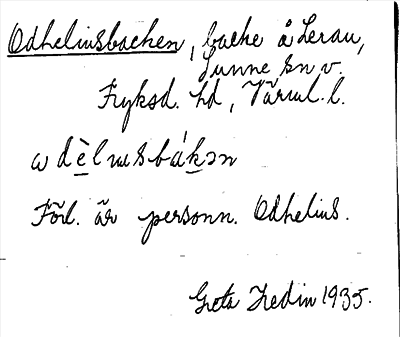 Odheliusbacken, backe å Lerau,
Sunne sn v.
Fryksd. hd, Värml. l.
wdèliusbákən
Förl. är personn. Odhelius.
Greta Hedin 1935.